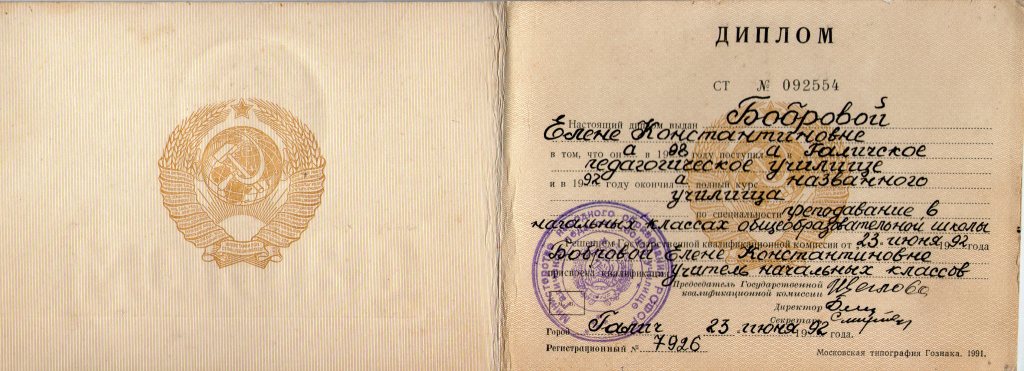 ДИПЛОМ
СТ № 092554
Настоящий диплом выдан Бобровой
Елене Константиновне
в том, что он а в 19 году поступил а в Галичское
педагогическое училище
и в 1992 году окончил а полный курс названного
училища
по специальности преподавание в
начальных классах общеобразовательной школы
Решением Государственной квалификационной комиссии от 23 июня 1992 года
Бобровой Елене Константиновне
присвоена квалификация учитель начальных классов
Председатель Государственной
квалификационной комиссии Щеглова
Директор
Секретарь
Город Галич 23 июня 1992 года.
Регистрационный № 7926
Московская типография Гознака. 1991.